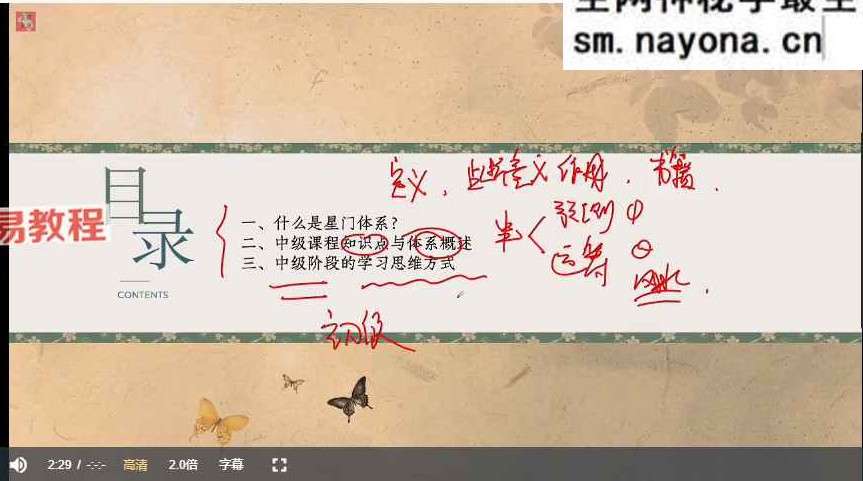 sm.nayona.cn
目录
CONTENTS
易教程
一、什么是星门体系?
二、中级课程知识点与体系概述
三、中级阶段的学习思维方式
定义,
作用,
预测
运筹
初级
2:29 / -:-
高清
2.0倍
字幕